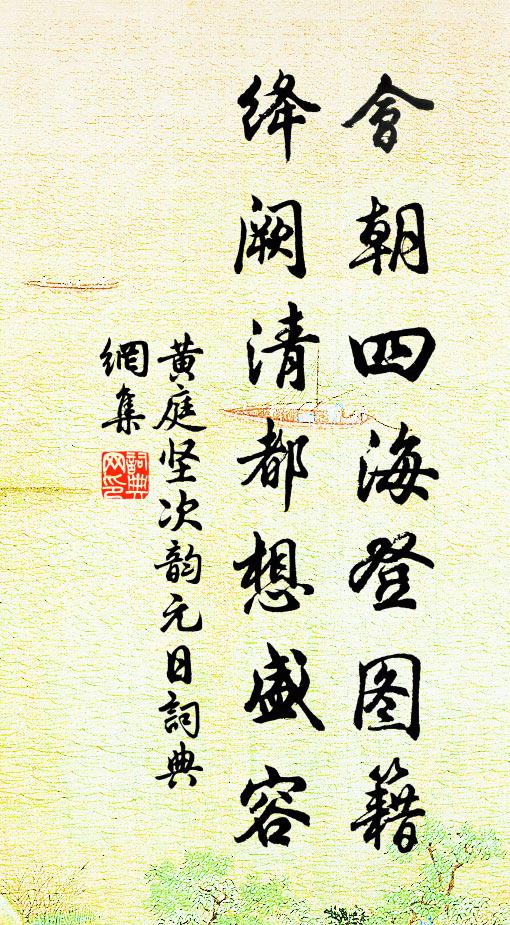 會朝四海登图籍
绛阙清都想盛容
黄庭坚次韵元日詞典
網集
詞典網印